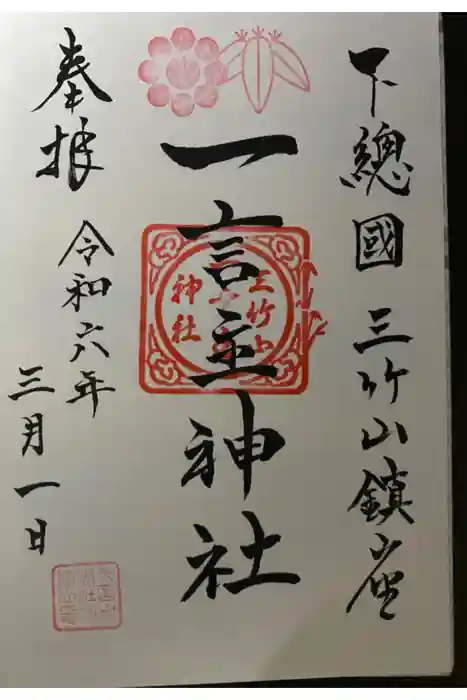 下總國 三竹山鎮座
一言主神社
三竹山
神社
奉拝
令和六年
三月一日